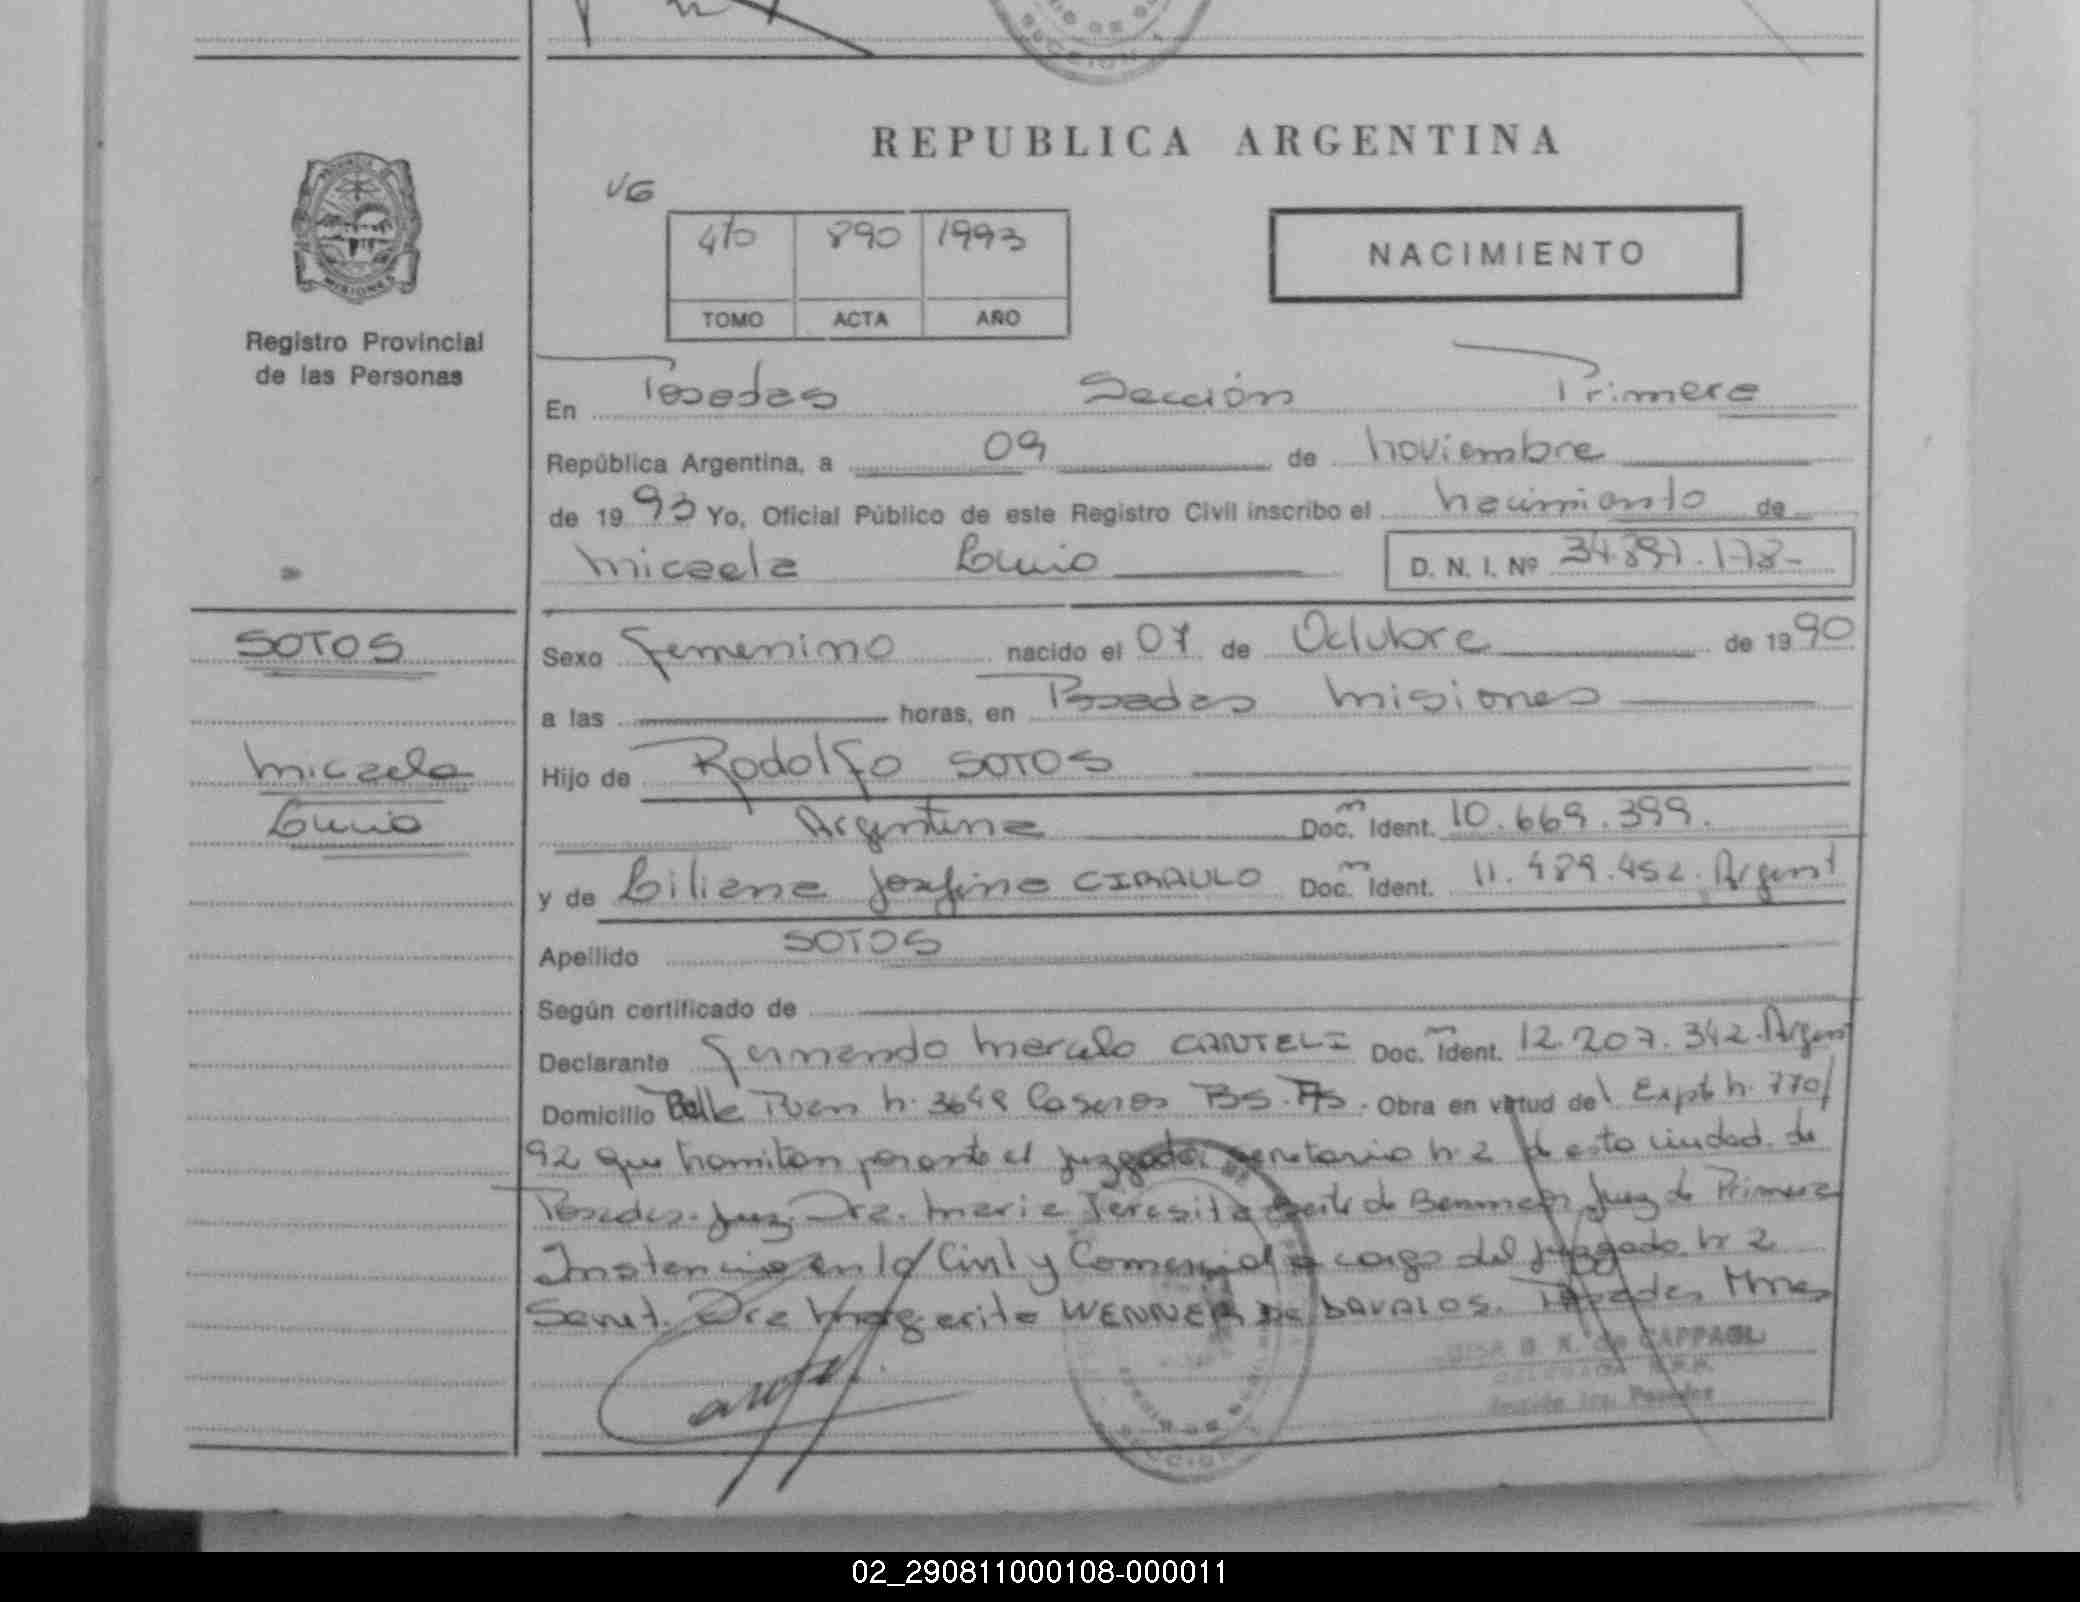 REPUBLICA ARGENTINA
PROVINCIA
MISIONES
Registro Provincial
de las Personas
VG
410 890 1993
TOMO ACTA AÑO
NACIMIENTO
En Posadas Sección Primera
República Argentina, a 09 de noviembre
de 1993 Yo, Oficial Público de este Registro Civil inscribo el nacimiento de
Micaela Lucia D. N. I. Nº 34.897.178-
SOTOS
Micaela
Lucia
Sexo Femenino nacido el 07 de Octubre de 1990
a las horas, en Posadas Misiones
Hijo de Rodolfo SOTOS
Argentina Doc. Ident. 10.669.399.
y de Liliana Josefina CIRAULO Doc. Ident. 11.489.452. Argent
Apellido SOTOS
Según certificado de
Declarante Fernando Marcelo CANTELI Doc. Ident. 12.207.342. Argent
Domicilio Calle Puan n. 3649 Caseros Bs. As. Obra en virtud del Expte n. 770/
92 que tramitan por ante el Juzgado, secretaria n. 2 de esta ciudad de
Posadas. Juez Dra. Maria Teresita de Juez de Primera
Instancia en lo Civil y Comercial a cargo del Juzgado n. 2
Secret. Dra Margarita WENNER DE DAVALOS. Posadas Mnes
de CAPPAGLI
Sección 1ra. Posadas
02_290811000108-000011